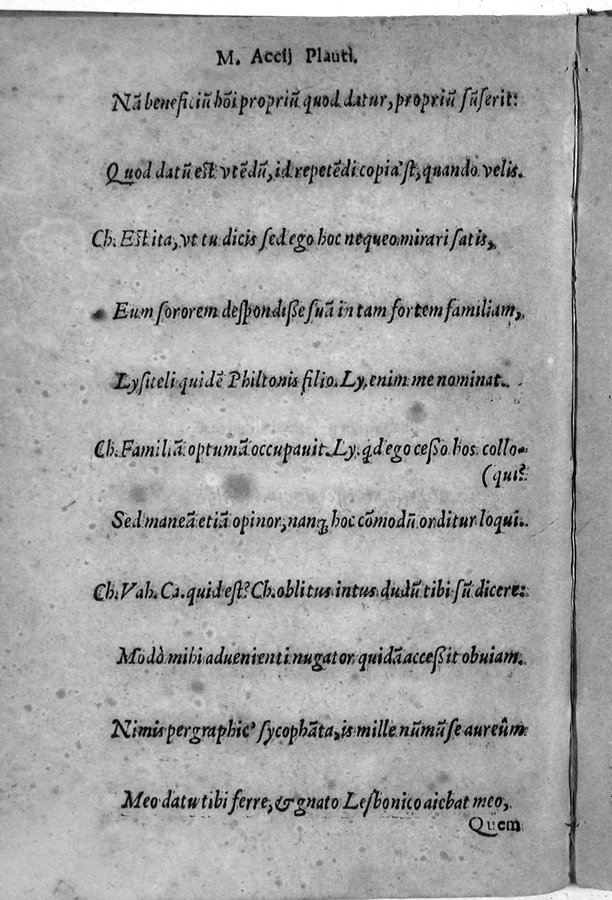 M. Accij Plauti.
Nā beneficiū hōi propriū quod datur, propriū sūserit:
Quod datū est vtēdū, id repetēdi copia'st, quando velis.
Ch. Est ita, vt tu dicis sed ego hoc nequeo mirari satis,
Eum sororem despondisse suā in tam fortem familiam,
Lysiteli quidē Philtonis filio. Ly. enim me nominat.
Ch. Familiā optumā occupauit. Ly. qd ego cesso hos collo-
(qui?
Sed maneā etiā opinor, nanq; hoc cōmodū orditur loqui.
Ch. Vah. Ca. quid est? Ch. oblitus intus dudū tibi sū dicere:
Modò mihi aduenienti nugator quidā accessit obuiam.
Nimis pergraphic' sycophāta, is mille nūmū se aureûm
Meo datu tibi ferre, & gnato Lesbonico aiebat meo,
Quem